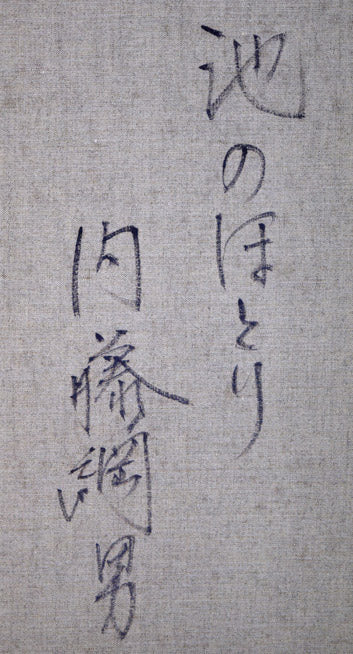 池のほとり
内藤綱男